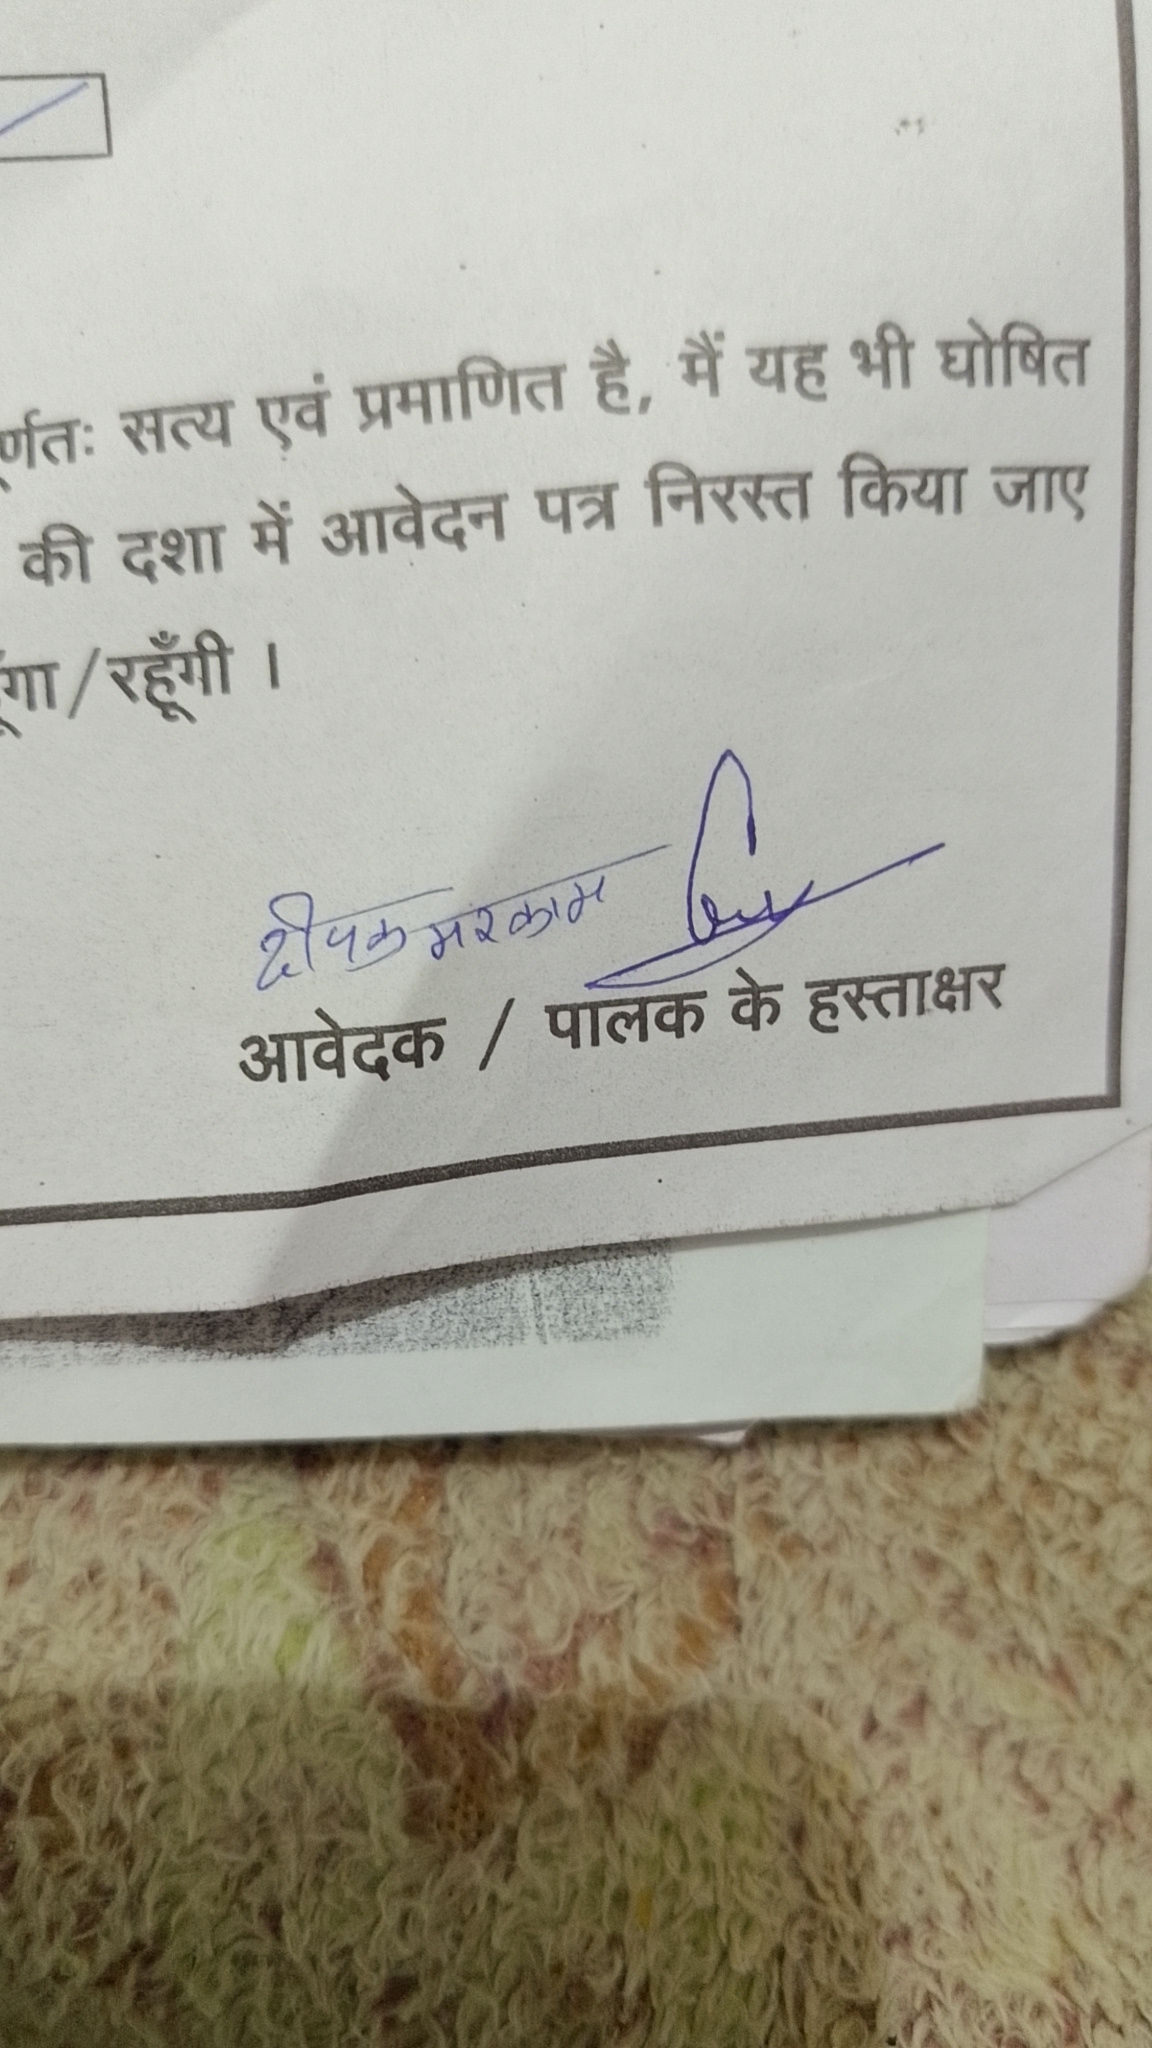 र्णतः सत्य एवं प्रमाणित है, मैं यह भी घोषित
की दशा में आवेदन पत्र निरस्त किया जाए
ूँगा/रहूँगी ।
दीपक मरकाम
आवेदक / पालक के हस्ताक्षर